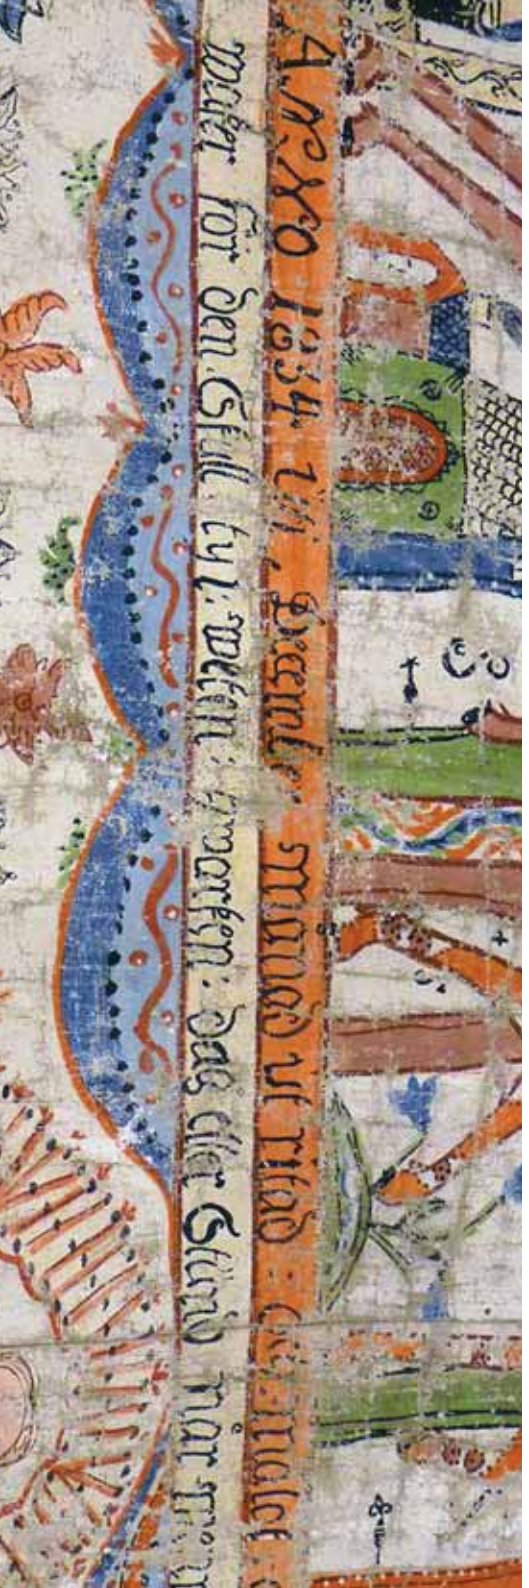 ANNO 1834 uti. December. Månad ut Ritad : och målet :
waker för den. Skull. ty i: weten: hwarken: dag eller Stund når